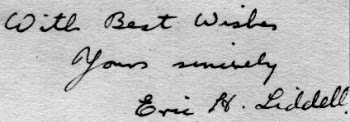 With Best Wishes
Yours sincerely
Eric H. Liddell.